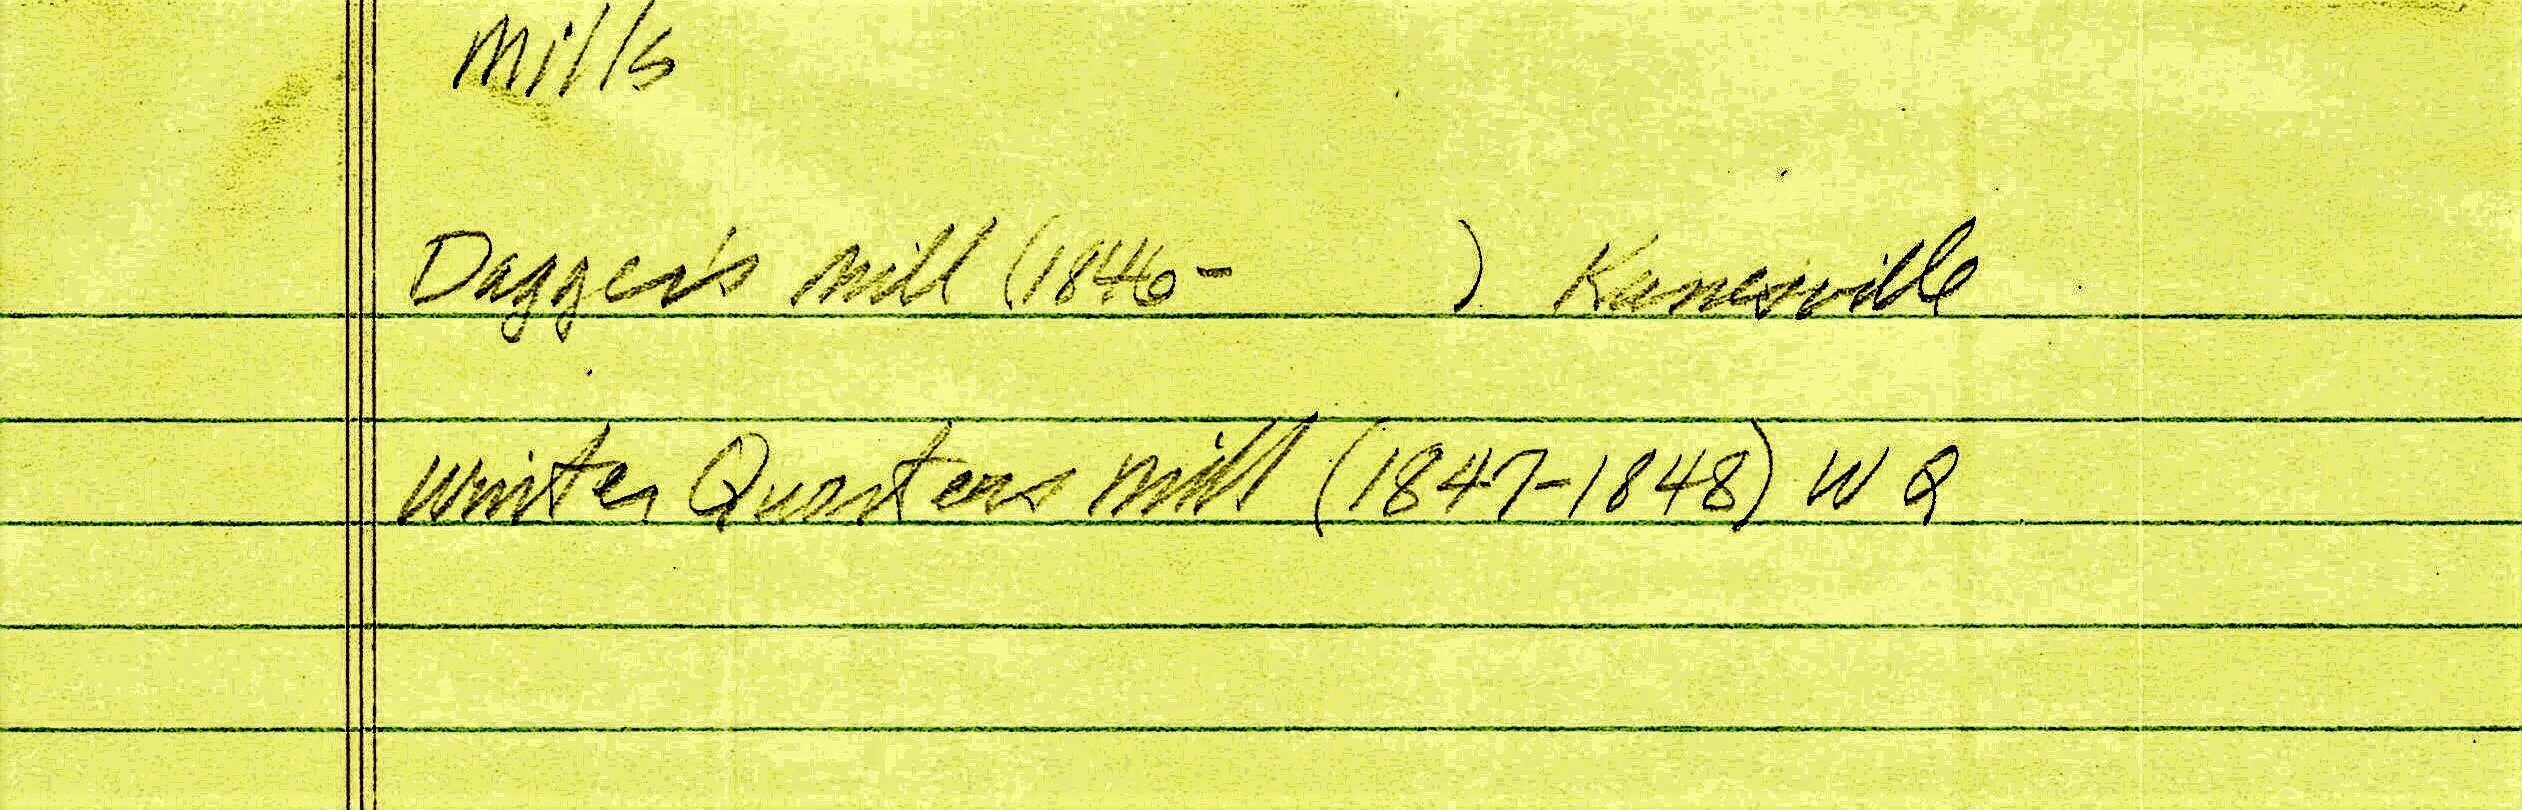 Mills
Dagger's Mill (1846-        ) Kanesville
Winter Quarters Mill (1847-1848) W Q